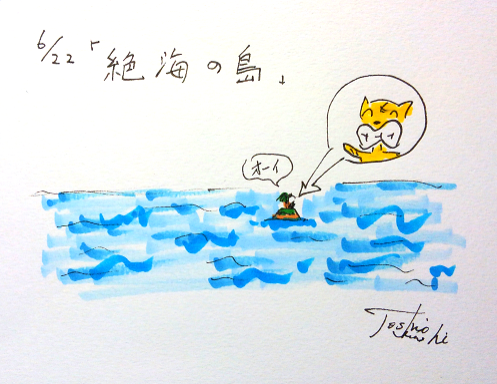 6/22「絶海の島」
オーイ
Toshio